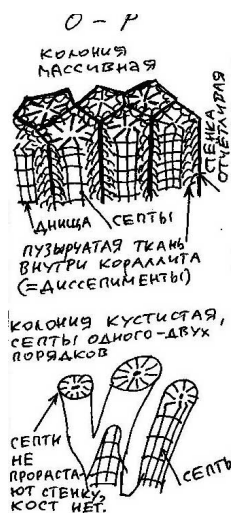 O – P
КОЛОНИЯ
МАССИВНАЯ
СТЕНКА
ОТЧЁТЛИВАЯ
ДНИЩА СЕПТЫ
ПУЗЫРЧАТАЯ ТКАНЬ
ВНУТРИ КОРАЛЛИТА
(=ДИССЕПИМЕНТЫ)
КОЛОНИЯ КУСТИСТАЯ,
СЕПТЫ ОДНОГО-ДВУХ
ПОРЯДКОВ
СЕПТИ
НЕ
ПРОРАСТА-
ЮТ СТЕНКУ,
КОСТ НЕТ.
СЕПТЫ